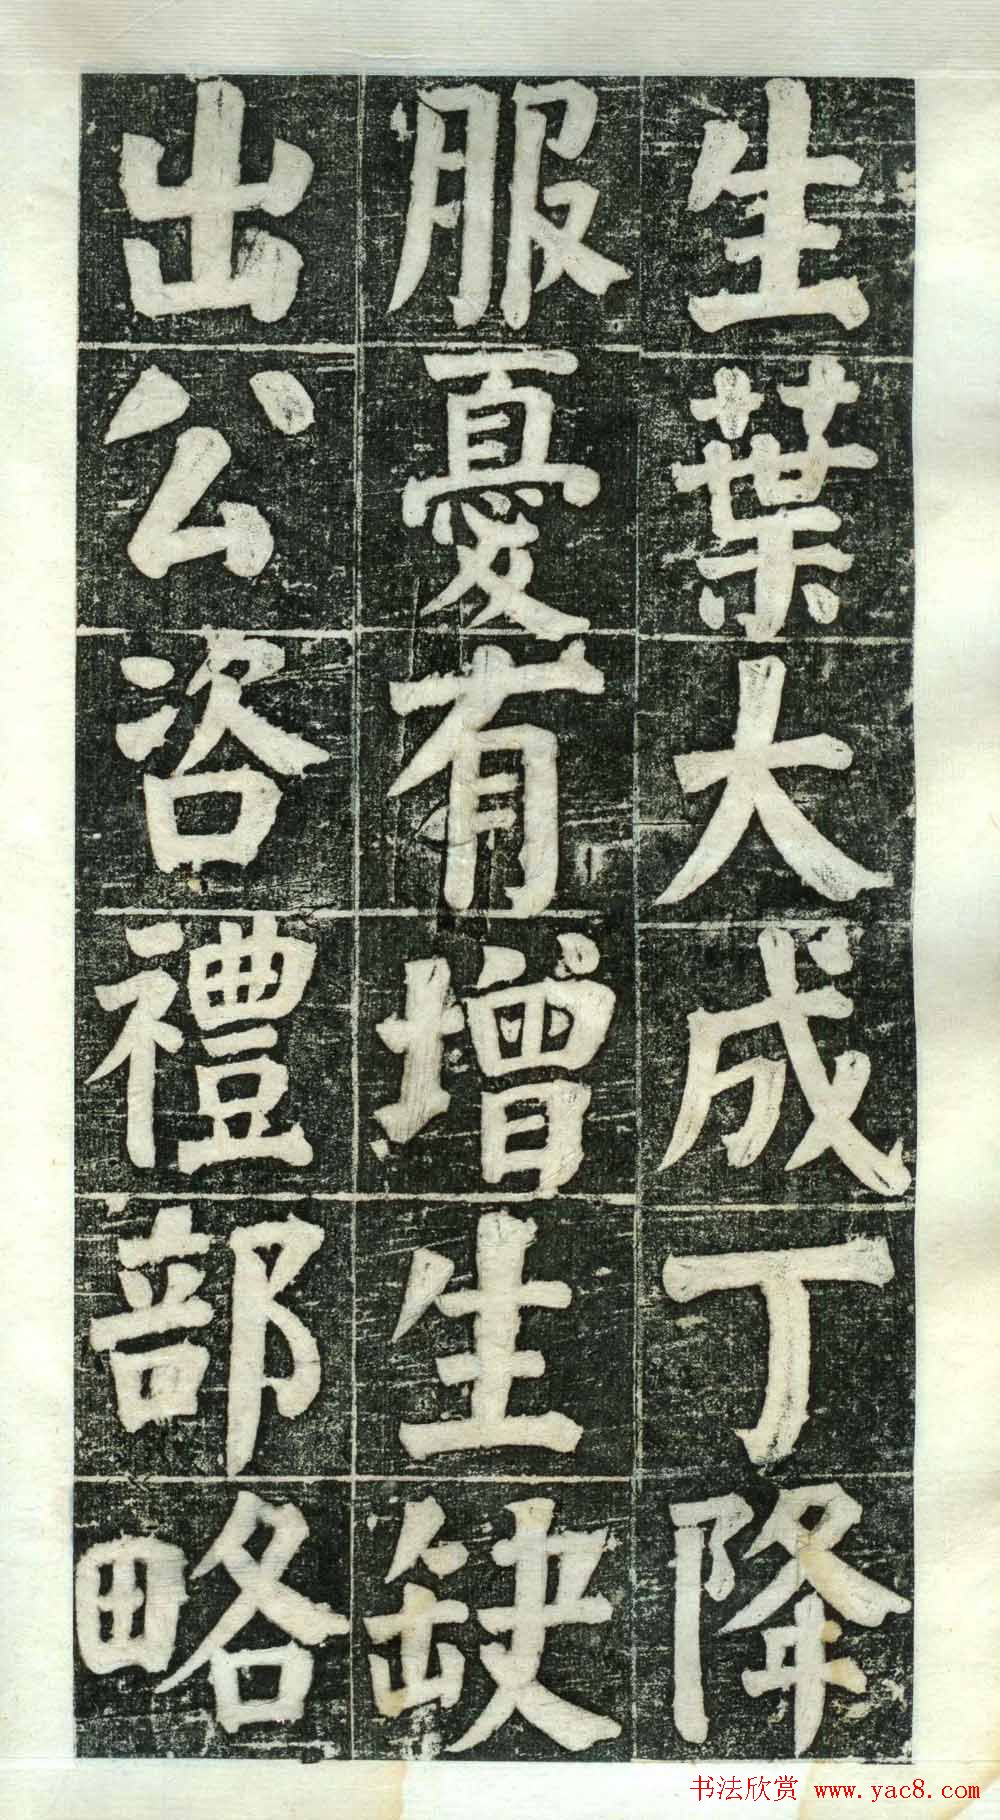 生葉大成丁降
服憂有增生缺
出公咨禮部略
书法欣赏 www.yac8.com